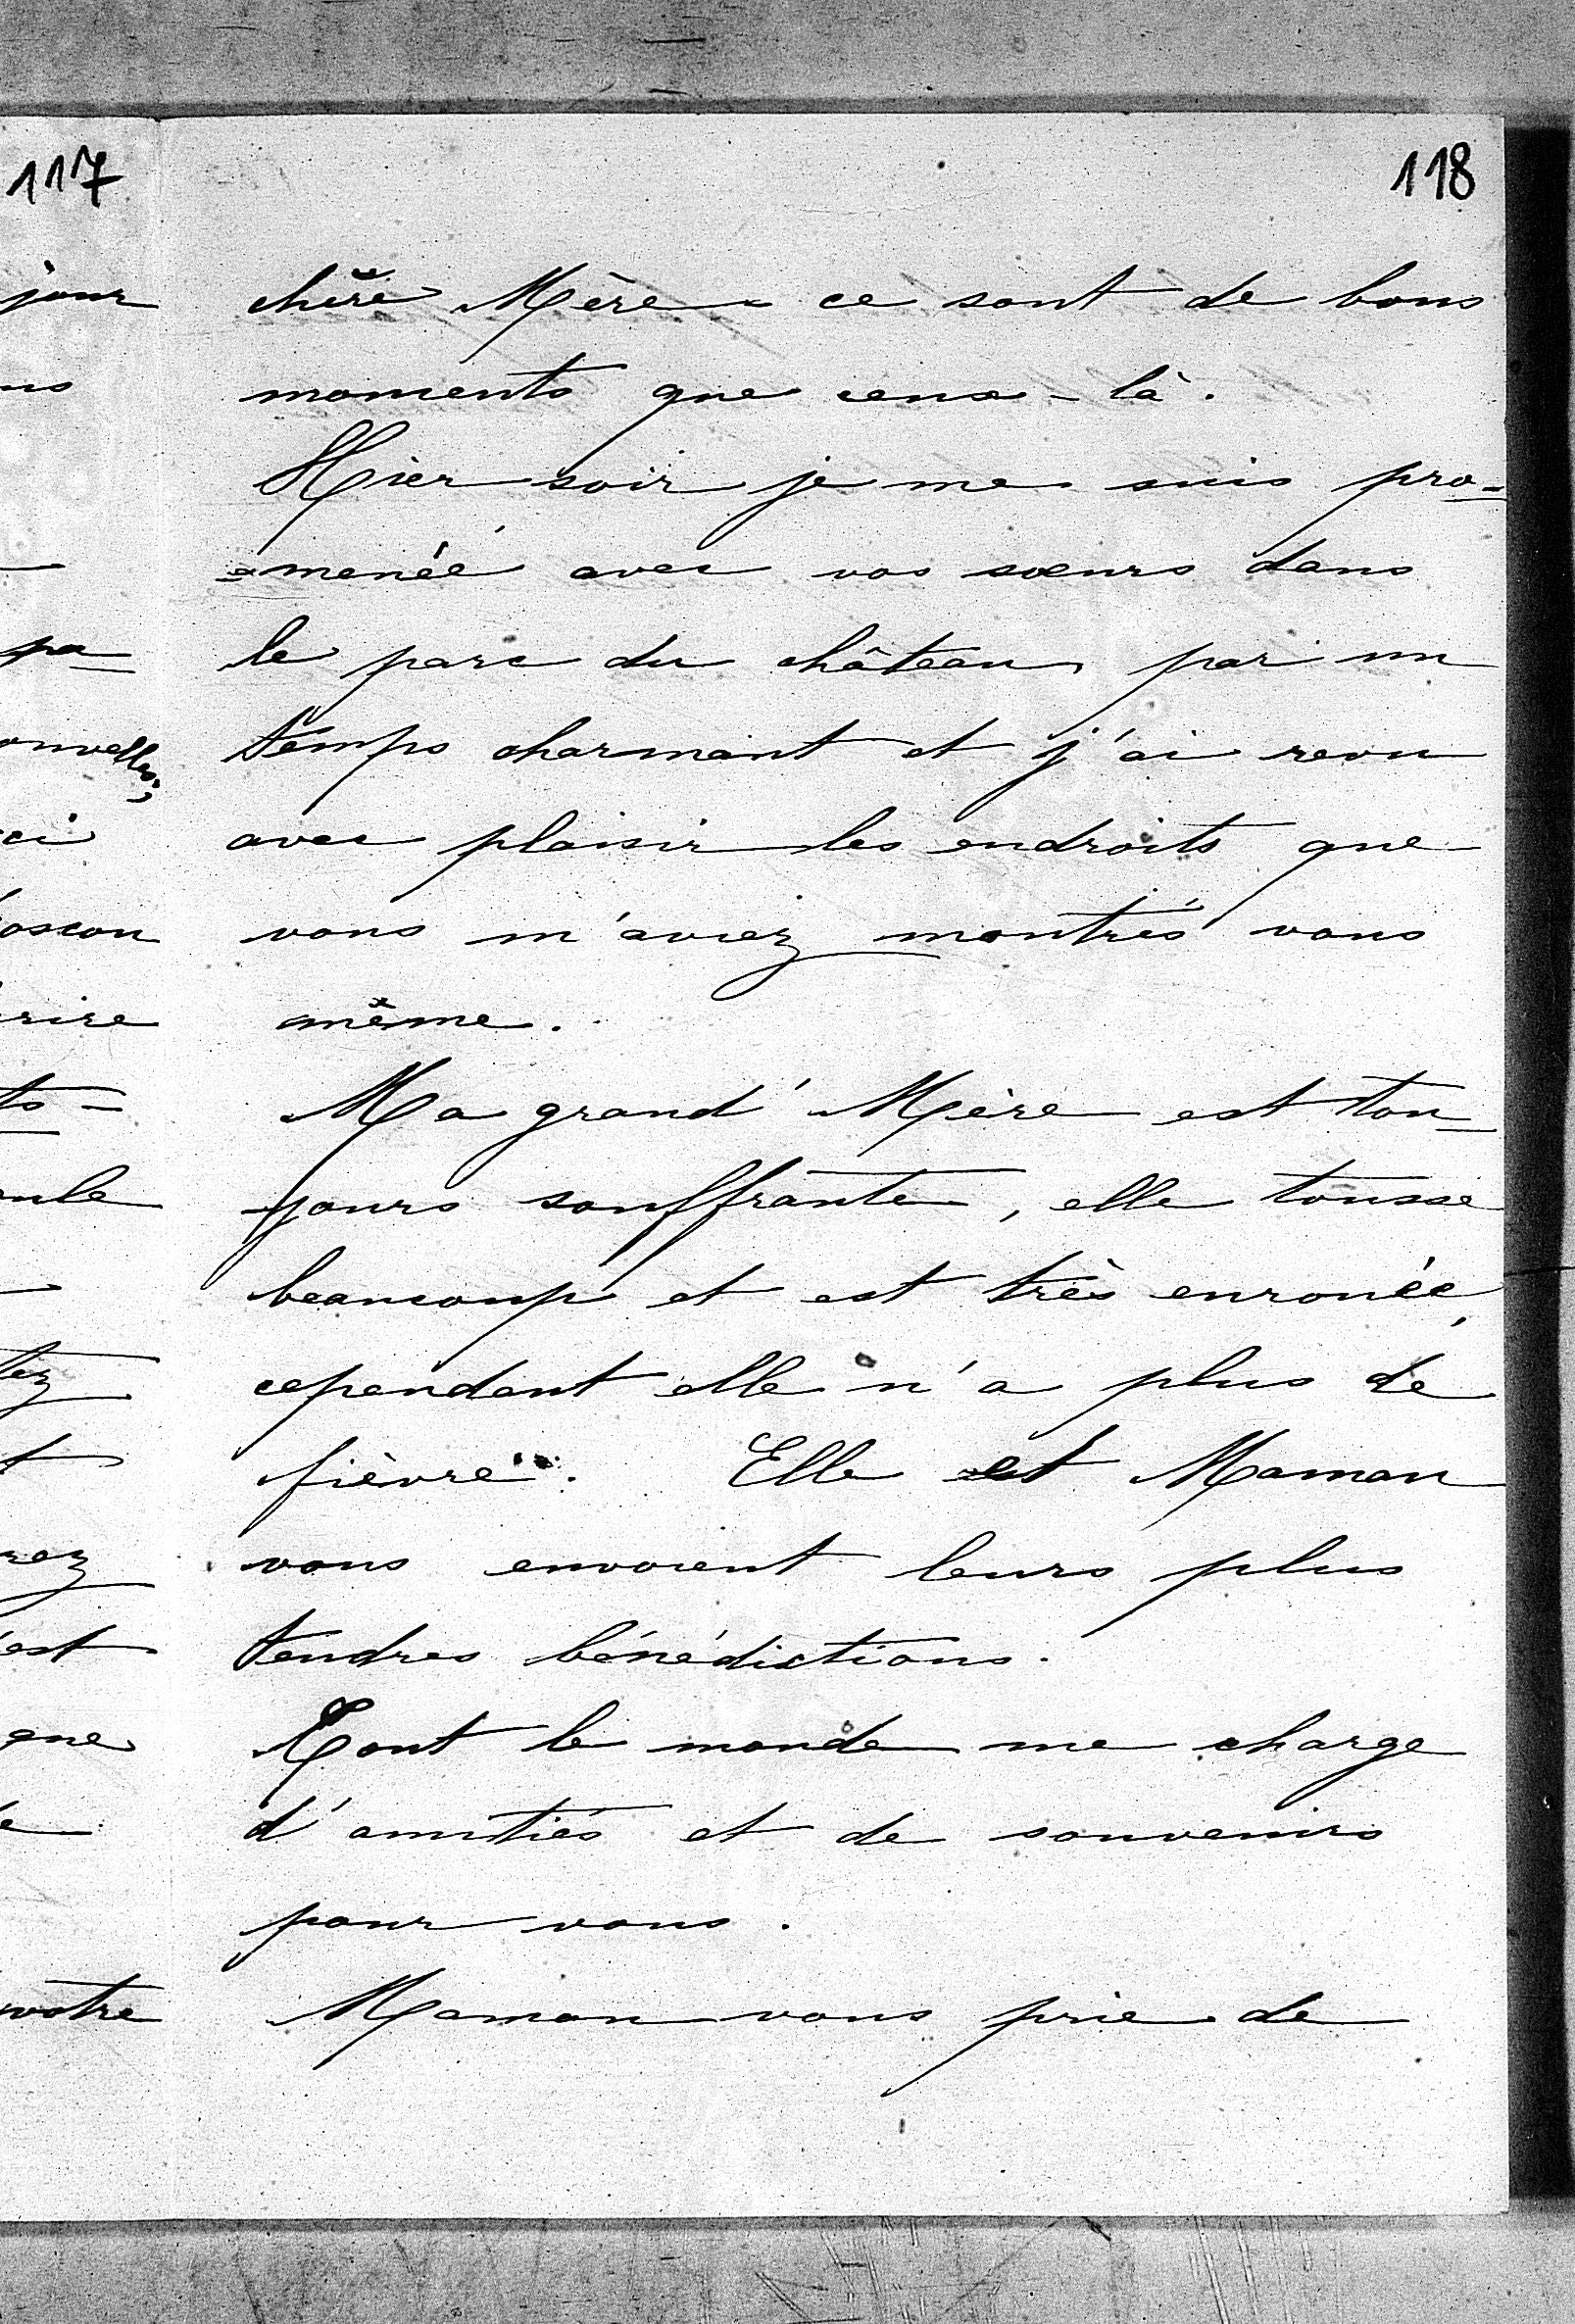 117
jour
ns
pa-
ouvelles,
ci
oscou
rire
ts-
oule
tez
t
rez
est
que
e
votre
118
chère Mère ce sont de bons
moments que ceux-là.
Hier soir je me suis pro-
-menée avec vos soeurs dans
le parc du château par un
temps charmant et j'ai revu
avec plaisir les endroits que
vous m'aviez montrés vous
même.
Ma grand'Mère est tou-
-jours souffrante, elle tousse
beaucoup et est très enrouée,
cependant elle n'a plus de
fièvre. Elle et Maman
vous envoient leurs plus
tendres bénédictions.
Tout le monde me charge
d'amitiés et de souvenirs
pour vous.
Maman vous prie de